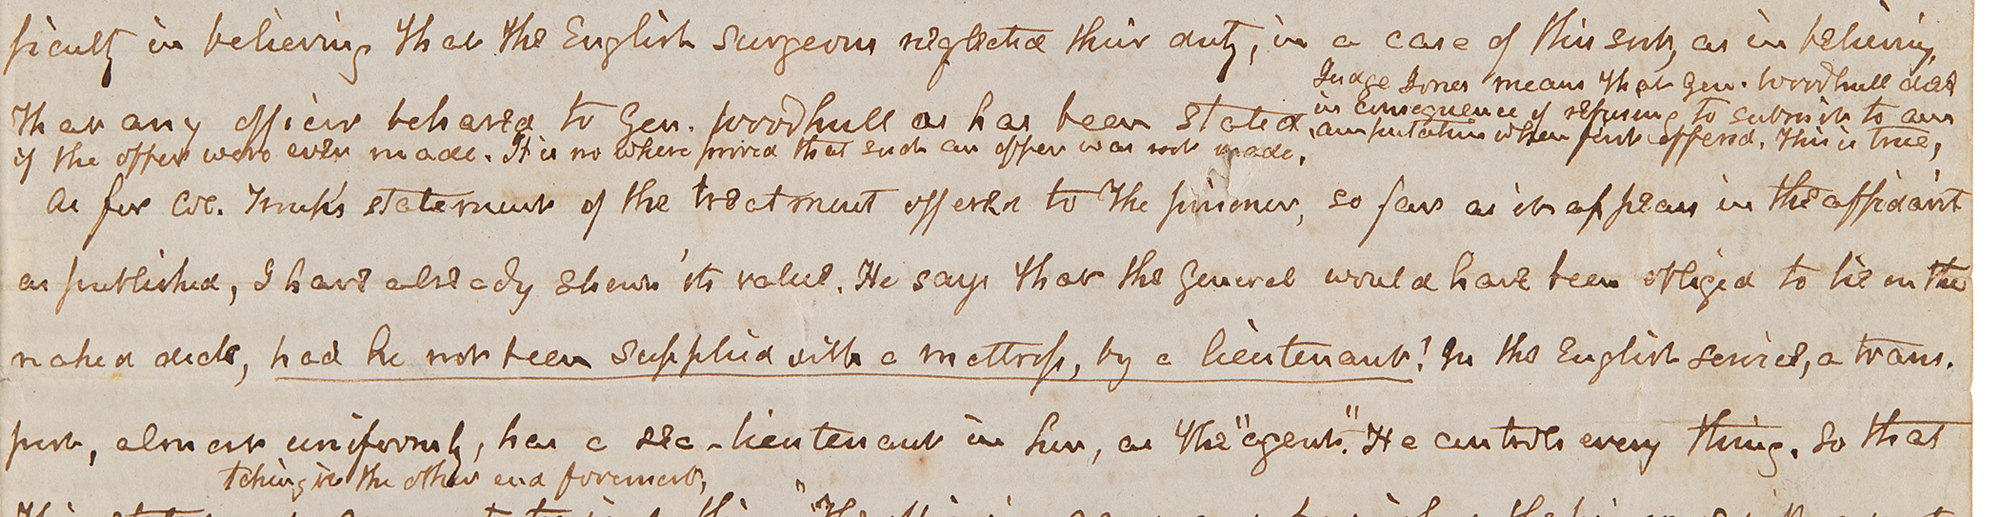 ficulty in believing that the English surgeons neglected their duty, in a case of this sort, as in believing
that any officer behaved to Gen. Woodhull as has been stated,
Judge Jones means that Gen. Woodhull died
in consequence of refusing to submit to am
amputation when first offered. This is true,
if the offer were ever made. It is no where proved that such an offer was not made,
As for Col. Troup's statement of the treatment offered to the prisoner, so far as it appears in the affidavit
as published, I have already shewn its value. He says that the General would have been obliged to lie on the
naked deck, had he not been supplied with a mattrass, by a lieutenant! In the English service, a trans-
port, almost uniformly, has a sea-lieutenant in her, as the "agent". He controls every thing. So that
taking in the other end foremost,